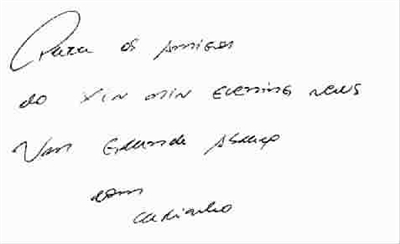 Para os amigos
do XIN MIN Evening news
Um grande Abraço
com
carinho